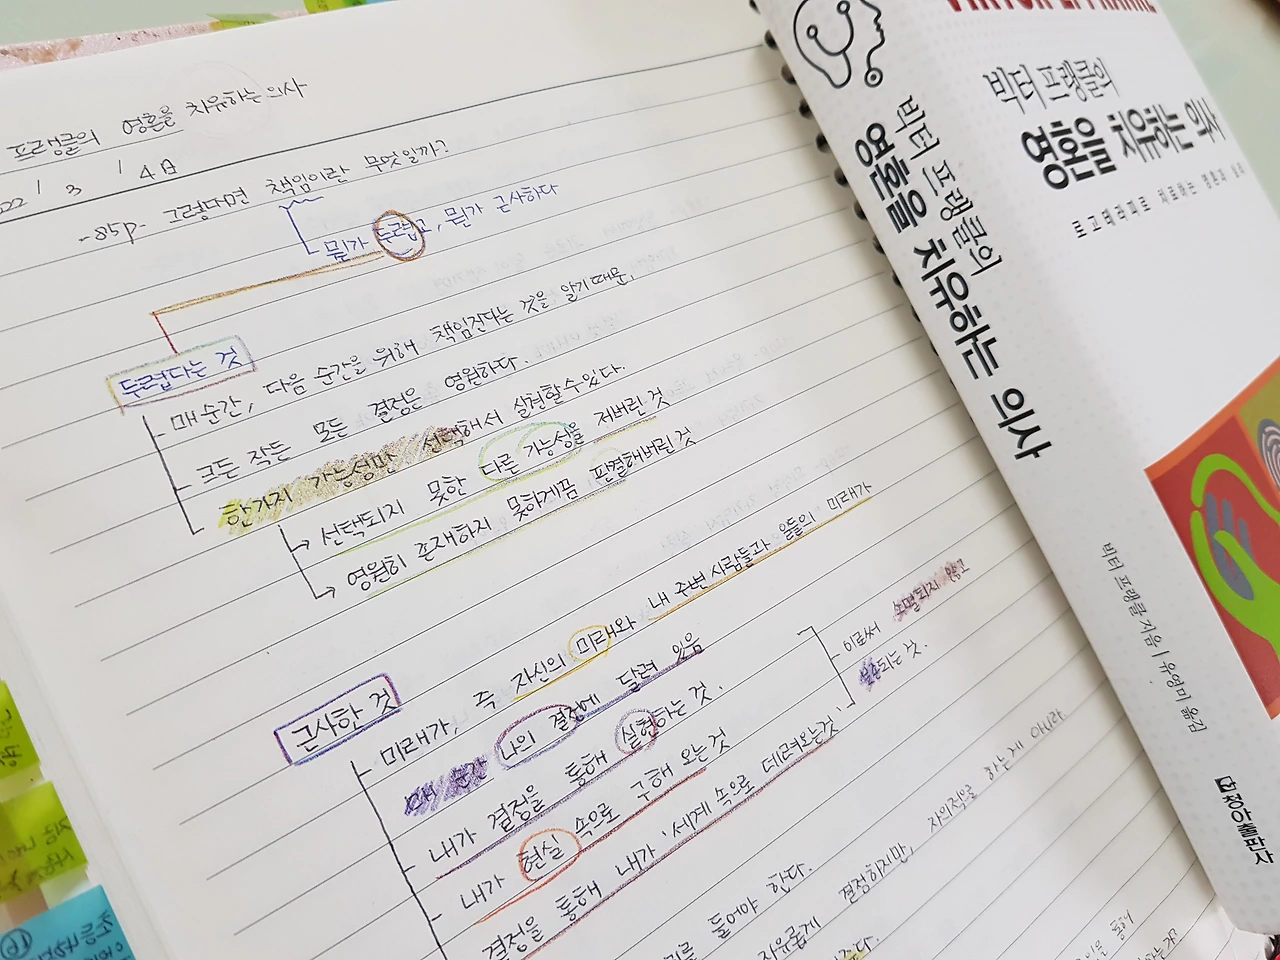 프랭클의 영혼을 치유하는 의사
22 / 3 / 4日
-85p- 그렇다면 책임이란 무엇일까?
뭔가 두렵고, 뭔가 근사하다
두렵다는 것
매순간, 다음 순간을 위해 책임진다는 것을 알기때문,
크든 작든 모든 결정은 영원하다.
한가지 가능성만 선택해서 실현할수있다.
선택되지 못한 다른 가능성을 저버린 것
영원히 존재하지 못하게끔 판결해버린 것
근사한 것
미래가, 즉 자신의 미래와 내 주변 사람들과 읻들의 미래가
매 순간 나의 결정에 달려 있음
내가 결정을 통해 실현하는 것.
내가 현실 속으로 구해 오는것
결정을 통해 내가 '세계 속으로 데려오는것'
이로써 소멸되지 않고
보존되는 것.
들어야 한다.
자유롭게 결정하지만, 자의적으로 하는게 아니라
빅터 프랭클의
영혼을 치유하는 의사
로고테라피로 치료하는 영혼과 심리
빅터 프랭클의
영혼을 치유하는 의사
빅터 프랭클 지음 | 유영미 옮김
청아출판사